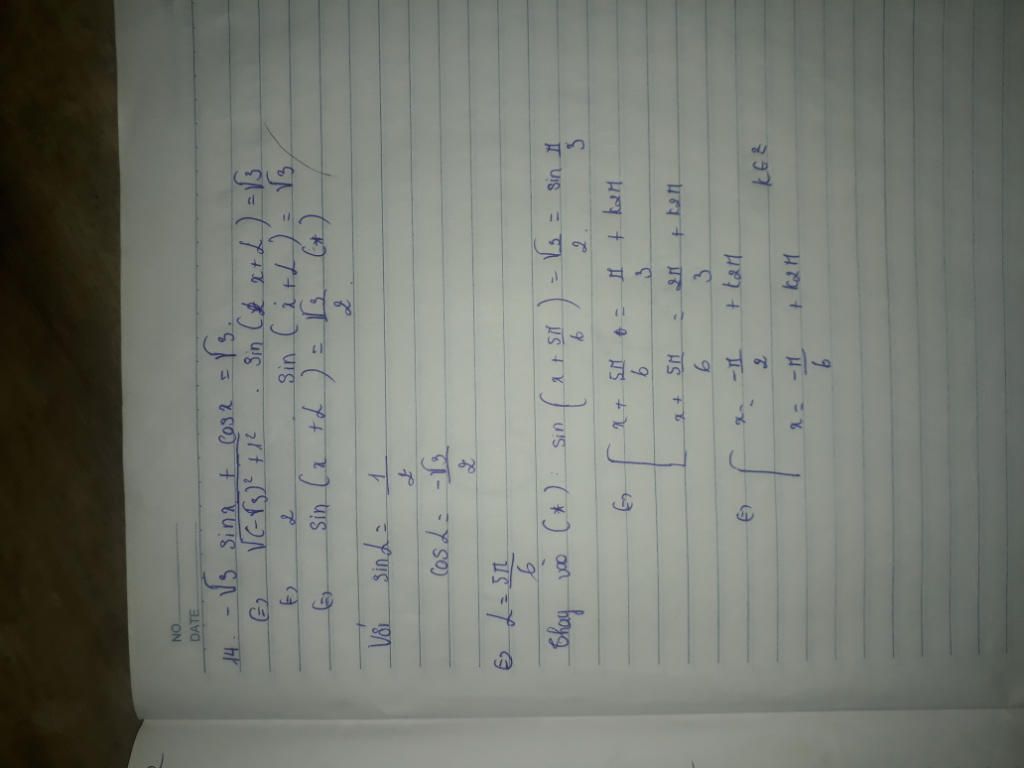 NO
DATE
14. -√3 sinx + cosx = √3.
⇔ √(-√3)² + 1² . sin(x + α) = √3
⇔ 2 sin(x + α) = √3
⇔ sin(x + α) = √3/2 (*)
Với sinα = 1/2
cosα = -√3/2
⇔ α = 5π/6
Thay vào (*): sin(x + 5π/6) = √3/2 = sin π/3
⇔ [ x + 5π/6 = π/3 + k2π
x + 5π/6 = 2π/3 + k2π
⇔ [ x = -π/2 + k2π
k∈Z
x = -π/6 + k2π